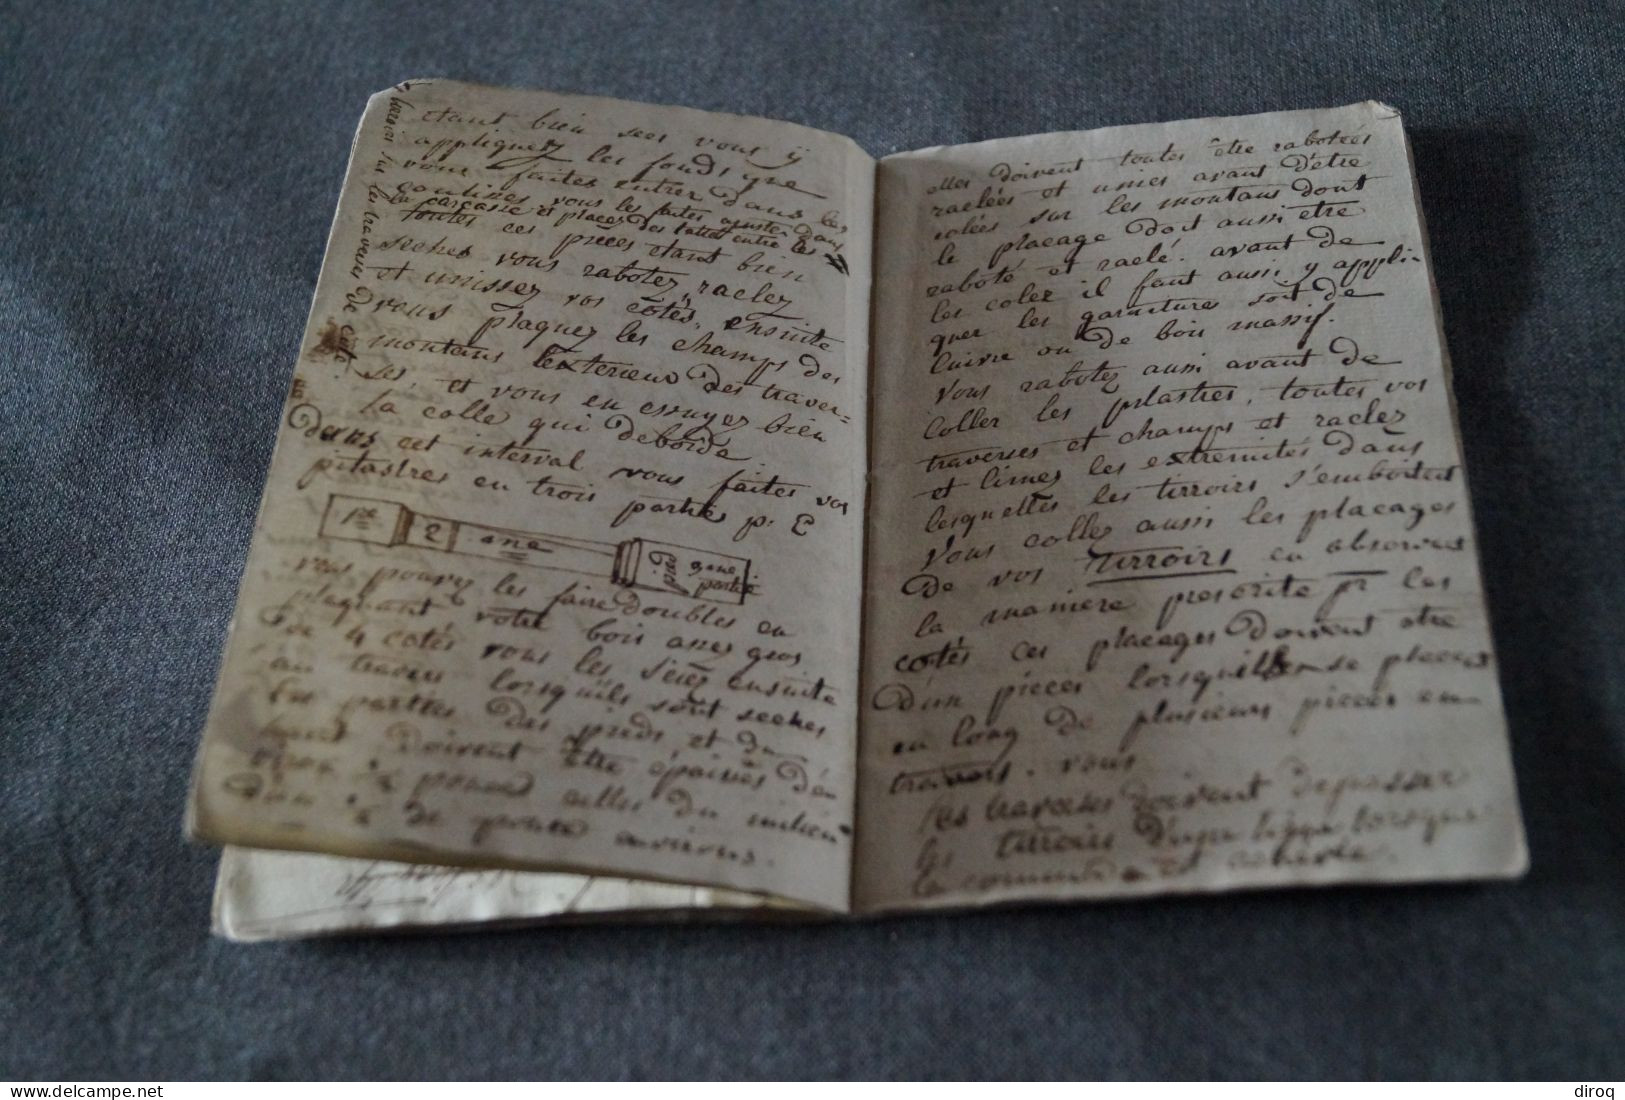 étant bien secs vous ÿ
appliquez les fonds que
vous faites entrer dans les
coulisses vous les faites ajuster dans
la carcasse et placez des lattes entre les
toutes ces pièces etant bien
seches vous rabotez raclez
et unissez vos côtés, ensuite
vous plaquez les champs des
montans l'exterieur des traver=
ses, et vous en essuyez bien
la colle qui deborde
Dans cet interval vous faites vos
pilastres en trois parties p. E
1re 2 eme
gme partie
vous pouvez les faire doubles en
plaquant votre bois assez gros
de 4 cotés vous les sciez ensuite
au travers lorsquils sont seches
les parties des pieds et du
haut doivent être épaisses d'en
viron pouce celles du milieu
d'un de pouce environs.
sur les traverses de coté.
elles doivent toutes être rabotées
raclées et unies avant d'être
colées sur les montans dont
le placage doit aussi etre
raboté et raclé. avant de
les coler il faut aussi y appli-
quer les garnitures soit de
cuivre ou de bois massif.
Vous rabotez aussi avant de
coller les pilastres, toutes vos
traverses et champs et raclez
et limes les extremités dans
lesquelles les tirroirs s'emboitent
Vous collez aussi les placages
De vos tirroirs en observant
la maniere prescrite pr les
cotés ces placages doivent etre
D'un pieces lorsquils se places
en long de plusieurs pieces en
travers. vous
les traverses doivent depasser
les tirroirs d'une ligne lorsque
la commode est achevée.
diroq